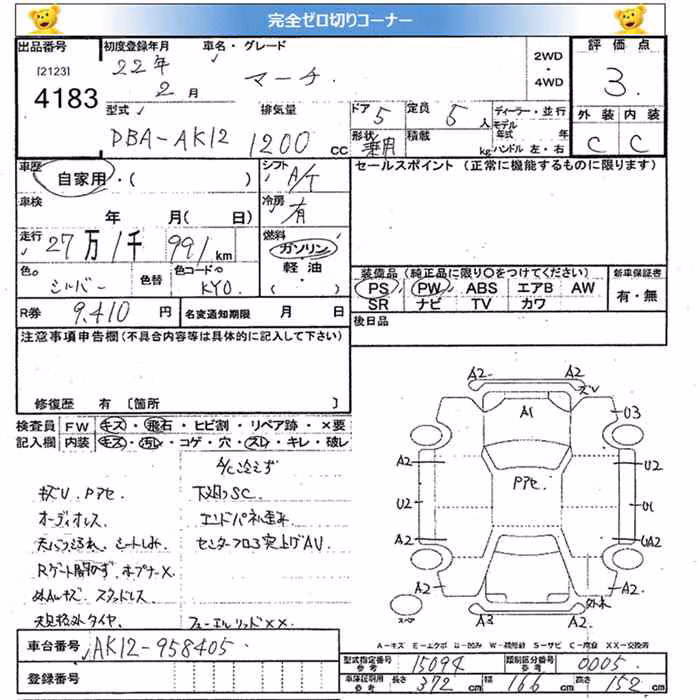 完全ゼロ切りコーナー
出品番号 初度登録年月 車名・グレード 2WD・4WD 評価点
[2123] 22年 2月 マーチ 3.
4183 型式 排気量 ドア 5 定員 5人 ディーラー・並行 外装 内装
DBA-AK12 1200cc 形状 乗用 積載 kg モデル年式 年 ハンドル 左・右 C C
車歴 自家用・( ) シフト A/T セールスポイント (正常に機能するものに限ります)
車検 年 月( 日) 冷房 有
走行 27万1千991km 燃料 ガソリン・軽油・( )
色 シルバー 色替 色コードNo KY0 装備品 (純正品に限り○をつけてください) 新車保証書
PS PW ABS エアB AW 有・無
SR ナビ TV カワ
R券 9,410円 名変通知期限 月 日 後日品
注意事項申告欄 (不具合内容等は具体的に記入して下さい)
修復歴 有 [箇所
検査員 FW キズ・飛石・ヒビ割・リペア跡・×要
記入欄 内装 キズ・汚レ・コゲ・穴・スレ・キレ・破レ
A/C冷えず
キズU、Pアセ 下廻りSC
オーディオレス エンドパネル歪み
シートしみ センターフロア突上げAU
Rゲート開かず
スタッドレス
規格外タイヤ フューエルリッド××
A2 A2 ズレ
A1 U3
A2 U2
Pアセ
U2 U1
A2 UA2
A2 A2
A3 A2
スペア
A-キズ E-エクボ U-凹み W-補修跡 S-サビ C-腐食 XX-交換済
車台番号 AK12-958405
登録番号
型式指定番号 参考 15094 類別区分番号 参考 0005
車庫証明用 参考 長さ 372cm 幅 166cm 高さ 152cm